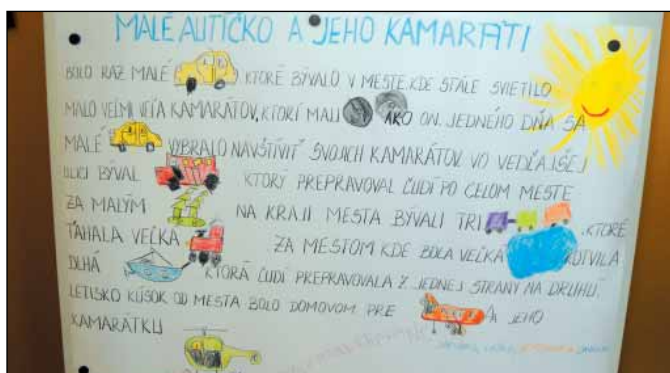 MALÉ AUTÍČKO A JEHO KAMARÁTI
BOLO RAZ MALÉ KTORÉ BÝVALO V MESTE, KDE STÁLE SVIETILO
MALO VEĽMI VEĽA KAMARÁTOV, KTORÍ MALI AKO ON. JEDNÉHO DŇA SA
MALÉ VYBRALO NAVŠTÍVIŤ SVOJICH KAMARÁTOV. VO VEDĽAJŠEJ
ULICI BÝVAL KTORÝ PREPRAVOVAL ĽUDÍ PO CELOM MESTE
ZA MALÝM NA KRAJI MESTA BÝVALI TRI KTORÉ
ŤAHALA VEĽKÁ ZA MESTOM KDE BOLA VEĽKÁ KOTVILA
DLHÁ KTORÁ ĽUDÍ PREPRAVOVALA Z JEDNEJ STRANY NA DRUHÚ.
LETISKO KÚSOK OD MESTA BOLO DOMOVOM PRE A JEHO
KAMARÁTKU